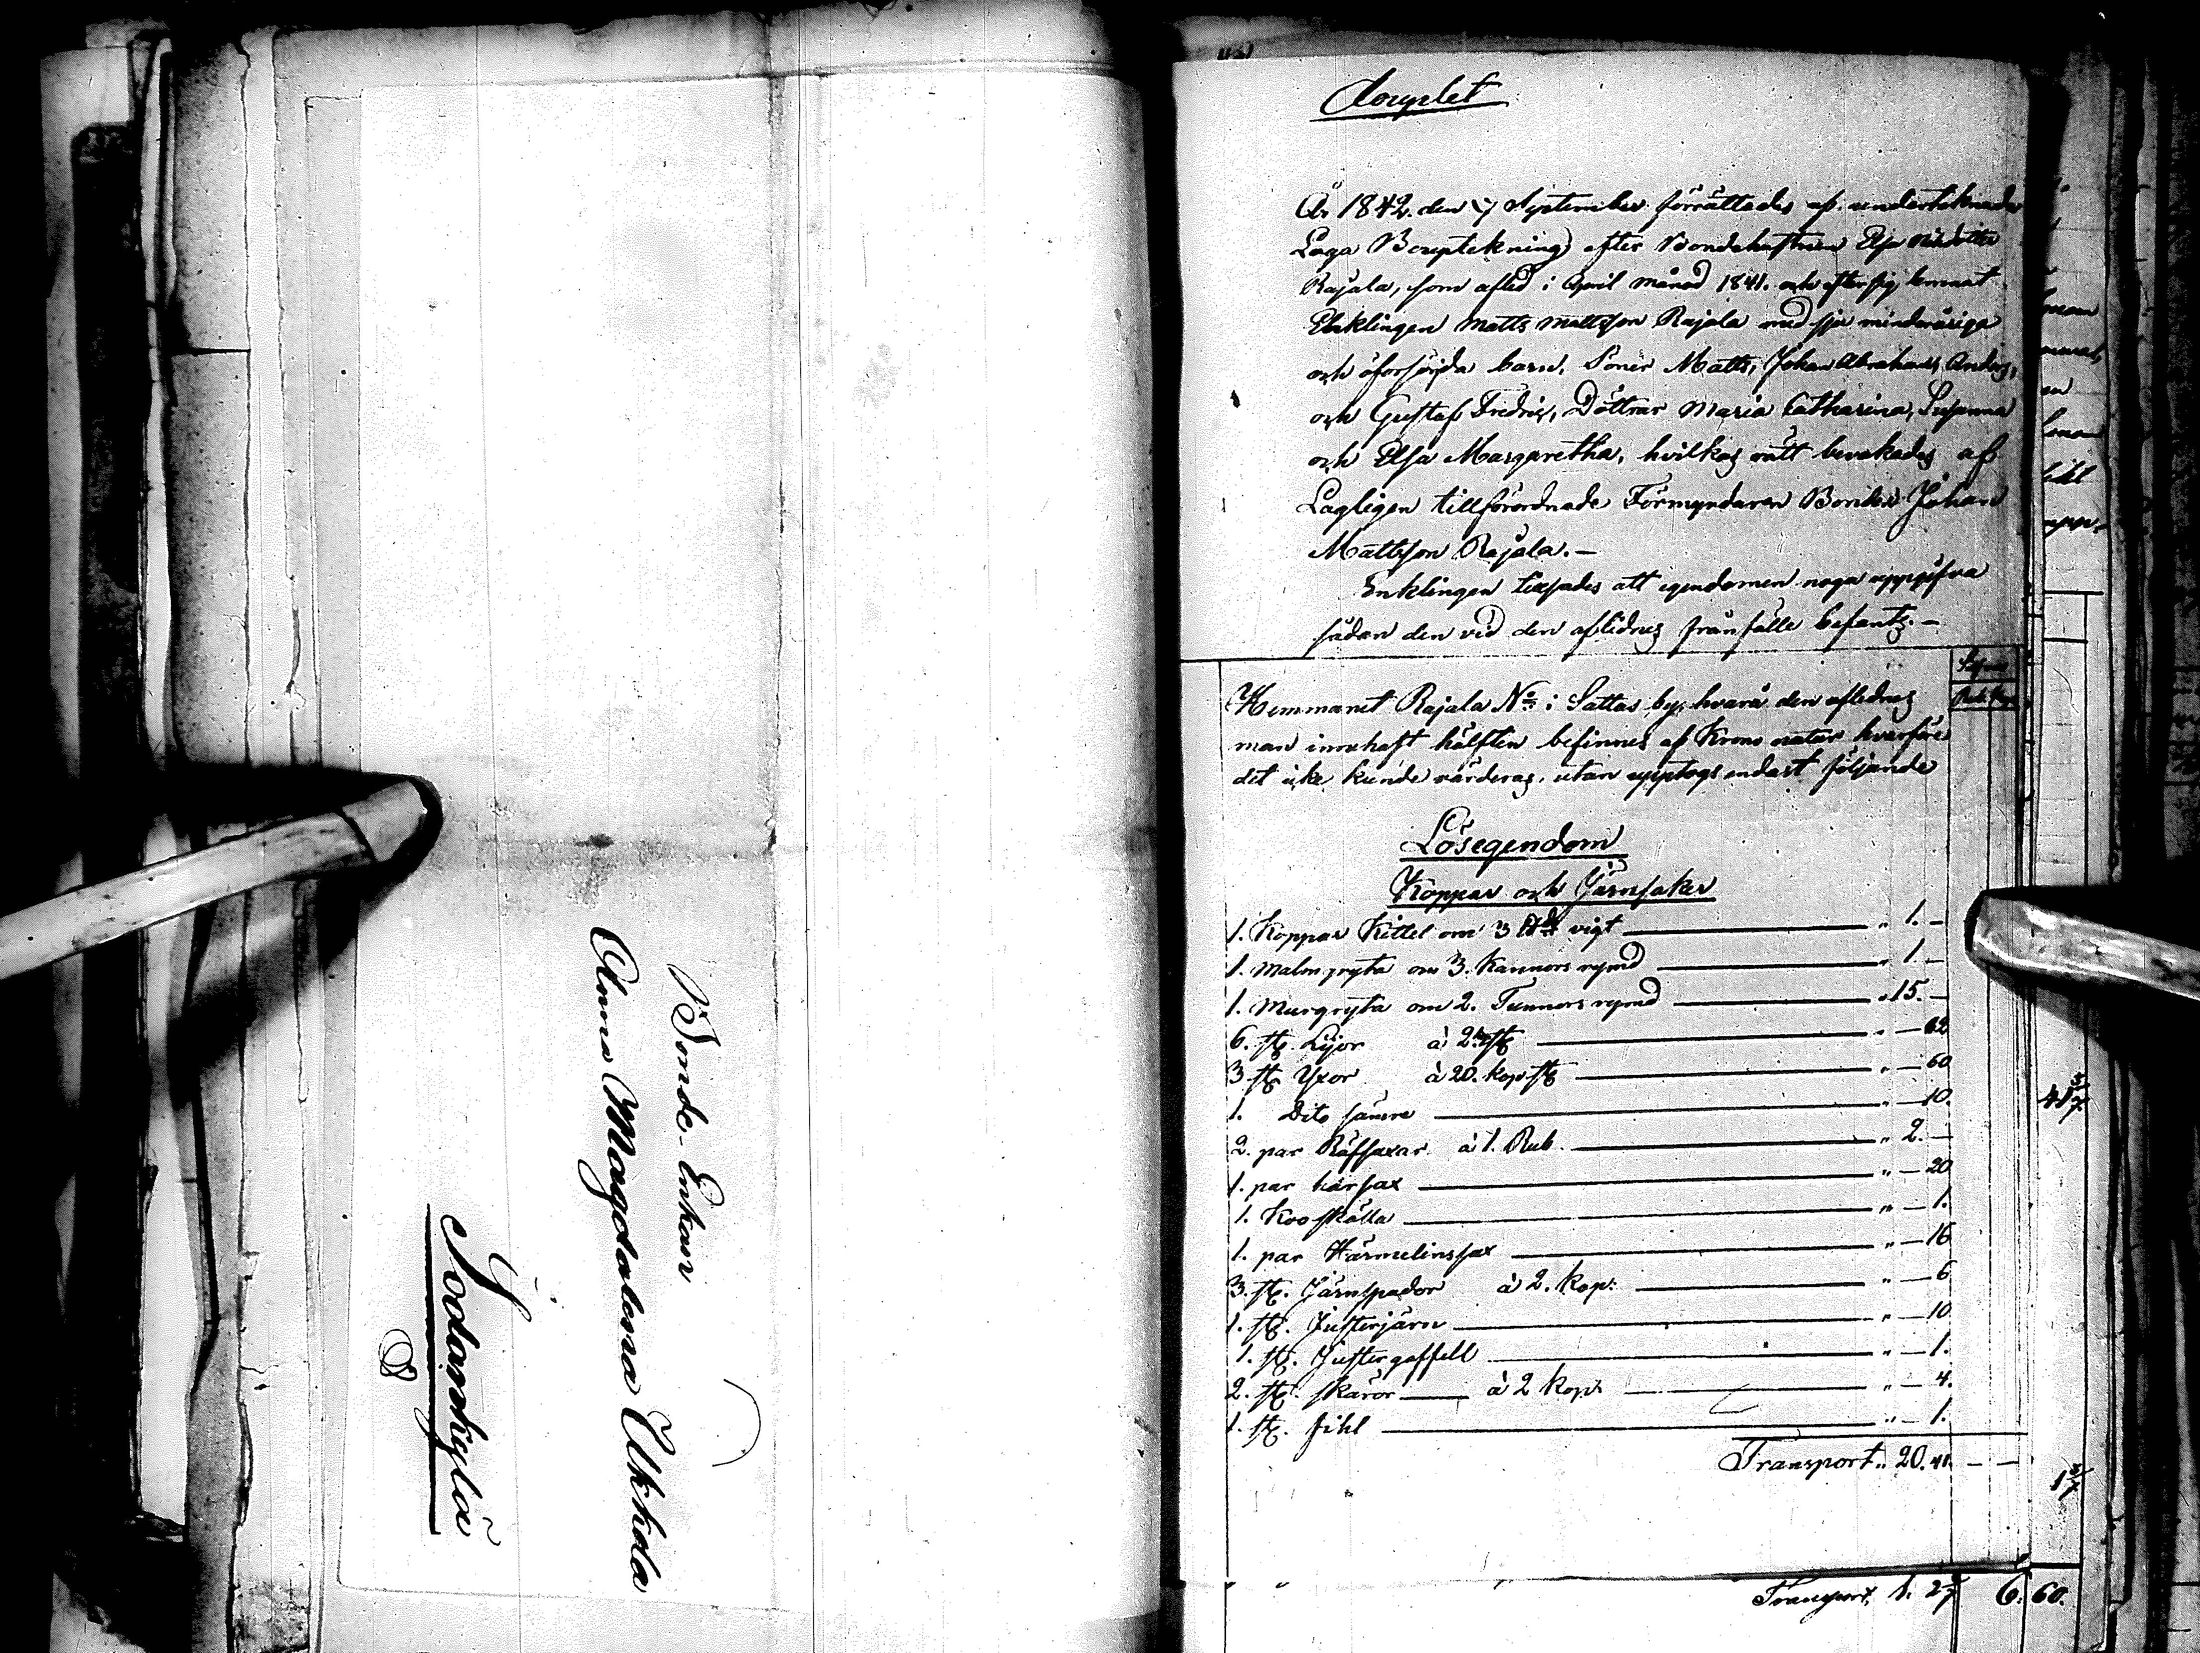 Bonde-Enkan
Anna Magdalena Ukkola
Sodankylä
Års 1842 den 7 September förrättades af undertecknade
Laga Bouptekning efter Bondehustrun Elsa
Rajala, som afled i April månad 1841. och efter sig lemnat
Enklingen Matts Mattsson Rajala med sju minderåriga
och oförsörjda barn, Söner Matts, Johan Abraham, Anders,
och Gustaf Fredric, Döttrar Maria Catharina, Susanna
och Elsa Margaretha, hvilkas rätt bevakades af
Lagligen tillförordnade Förmyndaren Bonden Johan
Mattsson Rajala. –
Enklingen tilsades att egendomen noga uppgifva
sådan den vid den aflidnes frånfälle befants. –
Hemmanet Rajala No i Sattas by, hvara den aflidnes
man innehaft hälften befinnes af Krono natur hvarföre
det icke kunde värderas, utan upptogs endast följande
Lösegendom
Koppar och Järnsaker
1. Koppar Kittel om 3 vigt " 1. –
1. Malmgryta om 3. Kannors rymd " 1. –
1. Murgryta om 2. Tunnors rymd " 15. –
6. st. Lijor à 2 st " – 12
3 st. Yxor à 20. kop st " – 60
1. Dito sämre " – 10.
2. par Räfsaxar à 1. Rub. " 2. –
1. par hårsax " – 20
1. Koo skälla " – 1.
1. par Härmelinssax " – 16
3. st. Järnspador à 2. kop. " – 6
1. st. Justerjärn " – 10
1. st. Justergaffell " – 1.
2. st. skäror à 2 kop. " – 4.
1. st. fihl " – 1.
Transport " 20. 41.
Transport 1. 27 6. 60.